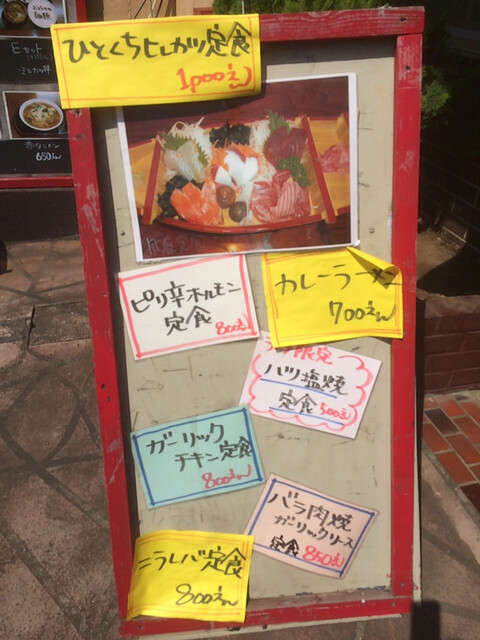 Eセット
ミニカツ丼
650えん
ひとくちヒレカツ定食
1,000えん
ピリ辛ホルモン
定食 800えん
カレーラーメン
700えん
限定
ハツ塩焼
定食 500えん
ガーリック
チキン定食
800えん
バラ肉焼
ガーリックソース
定食 850えん
ニラレバ定食
800えん